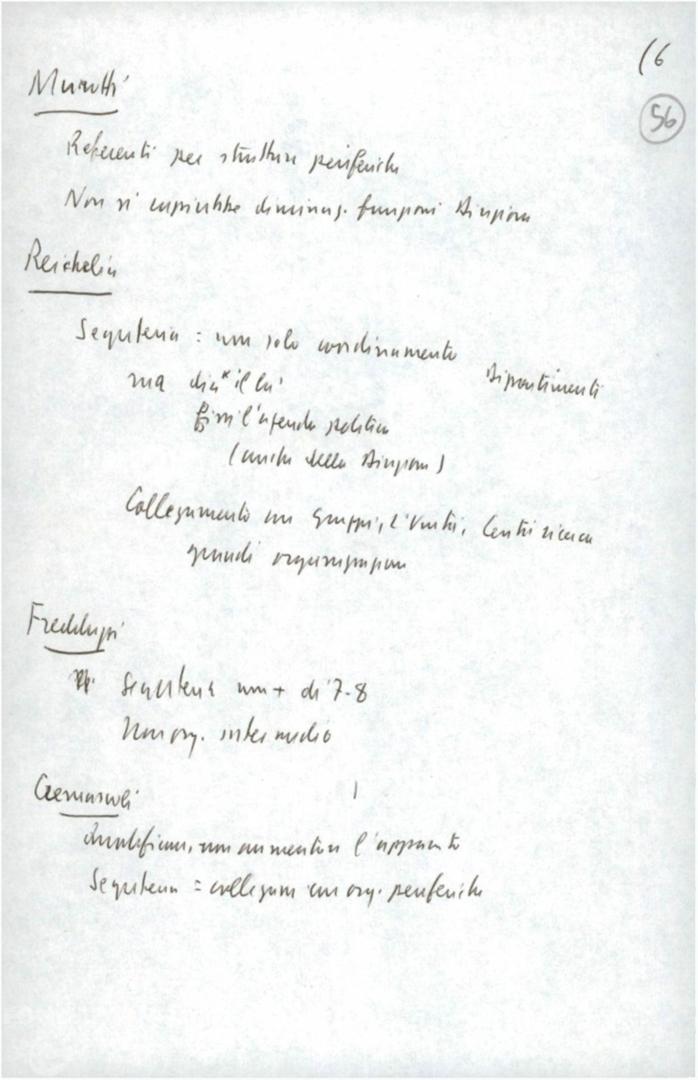 (6
56
Murotti
Referenti per strutture periferiche
Non si capirebbe diminuz. funzioni Direzione
Reichelin
Segreteria = non solo coordinamento Dipartimenti
ma dia il là
l'agenda politica
(anche della Direzione)
Collegamento con Gruppi, Centri ricerca
grandi organizzazioni
Freddurzi
Segreteria non + di 7-8
Non org. intermedio
non aumentare l'apparato
Segreteria = collegam con org. periferiche